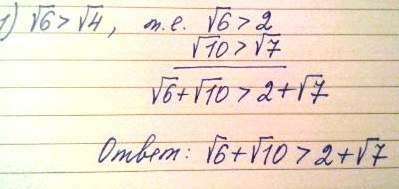 1) √6 > √4, т.е. √6 > 2
√10 > √7
√6 + √10 > 2 + √7
Ответ: √6 + √10 > 2 + √7